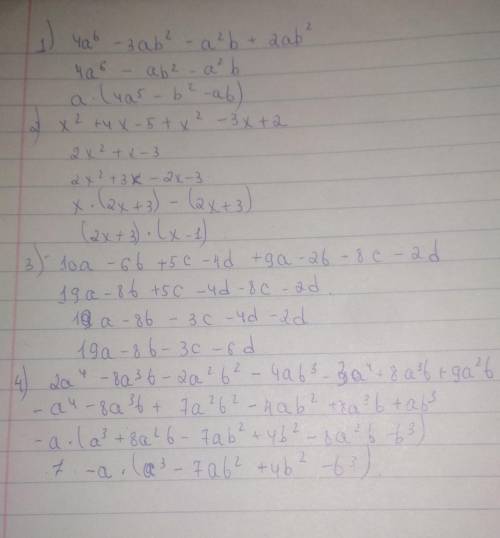 1) 4a⁶ - 3ab² - a²b + 2ab²
4a⁶ - ab² - a²b
a·(4a⁵ - b² - ab)
2) x² + 4x - 5 + x² - 3x + 2
2x² + x - 3
2x² + 3x - 2x - 3
x·(2x + 3) - (2x + 3)
(2x + 3)·(x - 1)
3) 10a - 6b + 5c - 4d + 9a - 2b - 8c - 2d
19a - 8b + 5c - 4d - 8c - 2d
19a - 8b - 3c - 4d - 2d
19a - 8b - 3c - 6d
4) 2a⁴ - 8a³b - 2a²b² - 4ab³ - 3a⁴ + 8a³b + 9a²b
- a⁴ - 8a³b + 7a²b² - 4ab² + 8a³b + ab³
- a·(a³ + 8a²b - 7ab² + 4b² - 8a²b - b³)
7 - a·(a³ - 7ab² + 4b² - b³)